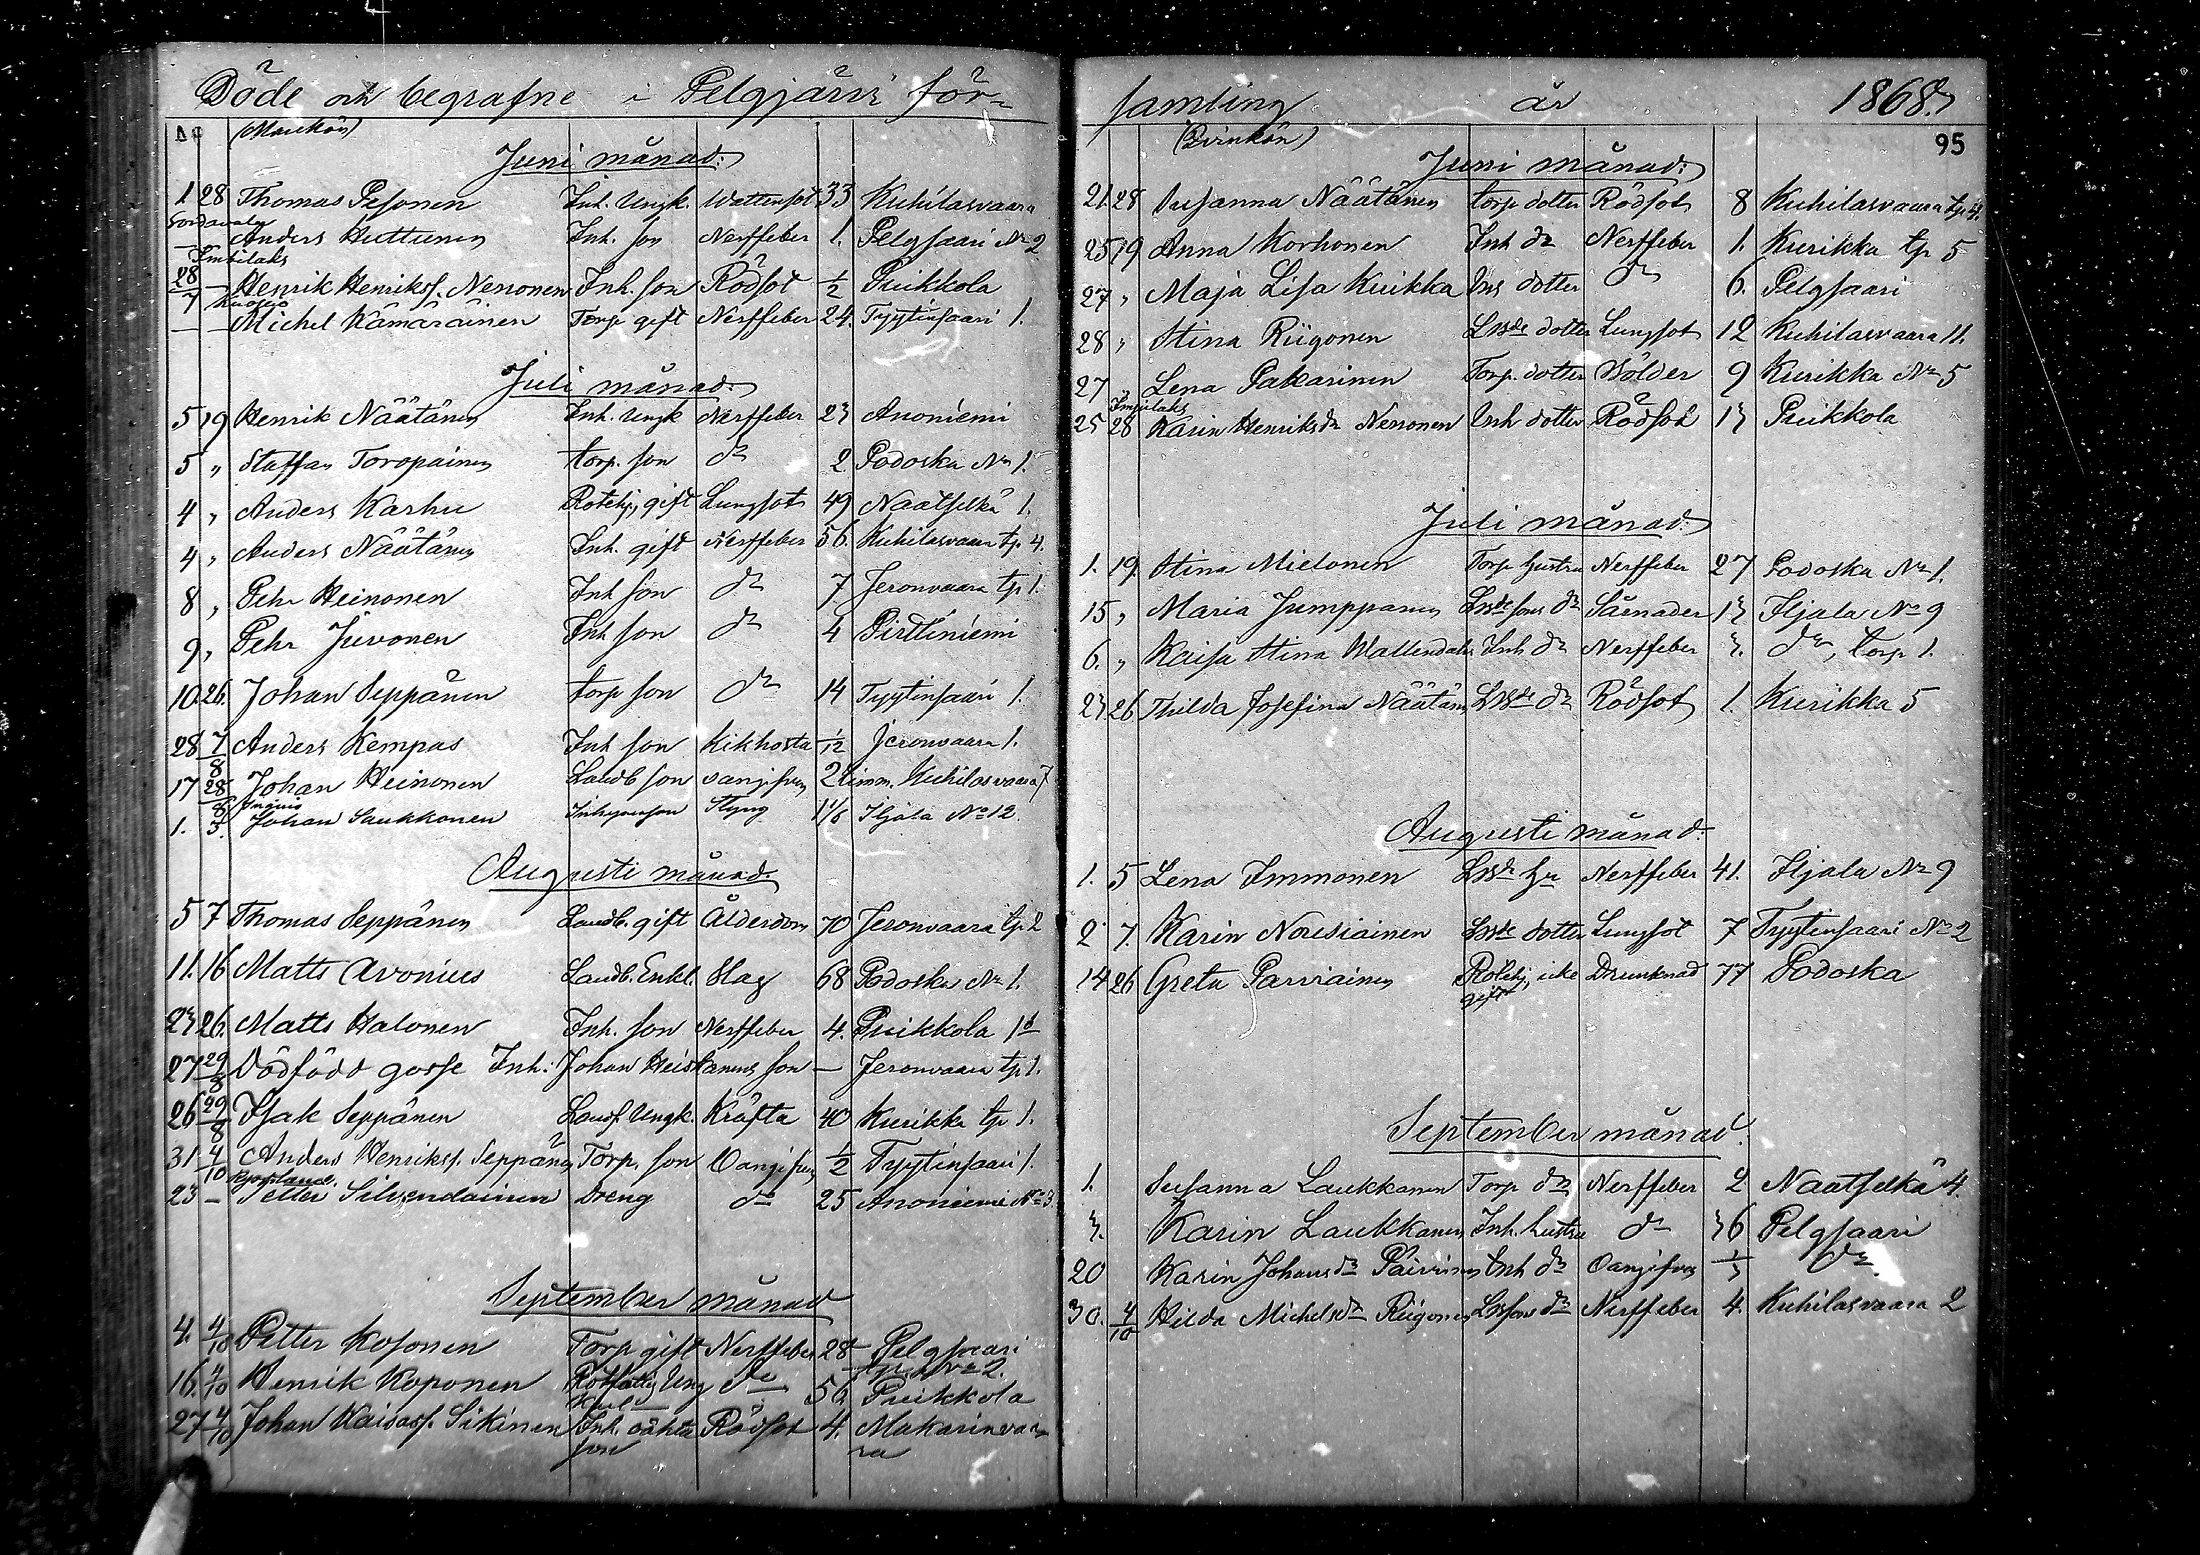 Döde och begrafne i Pelgjärvi för-
(Mankön)
Juni månad.
1. 28 Thomas Pesonen Inh. Ungk. Wattensot 33 Kuhilasvaara
Sordavala
— Anders Huttunen Inh. son Nerffeber 1. Pelgjaari No 2
Imbilaks
28/7 — Henrik Henrikss. Nenonen Inh. son Rödsot 1/2 Puikkola
Kuopio
— — Michel Kämäräinen Torp gift Nerffeber 24. Tyytinsaari 1.
Juli månad.
5 19 Henrik Näätänen Inh. Ungk Nerffeber 23 Anoniemi
5 " Staffan Toropainen torp. son do 2 Podoska No 1.
4 " Anders Karhu Rotehj. gift Lungsot 49 Naatselkä 1.
4 " Anders Näätänen Inh. gift Nerffeber 56. Kuhilasvaara tp. 4.
8 " Pehr Heinonen Inh son do 7 Jeronvaara tp 1.
9 " Pehr Juvonen Inh son do 4 Pirttiniemi
10. 26. Johan Seppänen torp son do 14 Tyytinsaari 1.
28 7/8 Anders Kempas Inh son Kikhosta 1/12 Jeronvaara 1.
17 28/8 Johan Heinonen Landb son oangifven 2 timm. Kuhilasvaara 7
1. 3. Johan Saukkonen Styng 1 1/6 Iljala No 12
Augusti månad.
5 7 Thomas Seppänen Landb. gift Ålderdom 70 Jeronvaara tp 2
11. 16 Matts Avonius Landb. Enkl. Slag 68 Podoska No 1.
23 26. Matts Halonen Inh. son Nerffeber 4. Puikkola 1
27 29/8 Dödfödd gosse Inh. Johan Heiskanens son — Jeronvaara tp 1.
26 29/8 Isak Seppänen Ungk. Kräfta 40 Kurikka tp 1.
31 4/10 Anders Henrikss. Seppänen Torp. son Oangifven 1/2 Tyytinsaari 1.
23 — Petter Silvendainen Dreng do 25 Anoniemi No 3.
September månad
4. 4/10 Petter Kosonen Torp gift Nerffeber 28 Pelgjaari
tp. No 2.
16. 4/10 Henrik Koponen Ung do 56 Puikkola
27 4/10 Johan Kaisass. Sikinen Inh. oäkta Rödsot 4. Makarinvaa-
son ra
samling år 1868.
(Qvinkön)
95
Juni månad.
21. 28 Susanna Näätänen torp dotter Rödsot 8 Kuhilasvaara tp 4.
25 19 Anna Korhonen Inh dr Nerffeber 1. Kurikka tp 5
27 " Maja Lisa Kuikka Inh dotter do 6. Pelgjaari
28 " Stina Riigonen dotter Lungsot 12 Kuhilasvaara 11.
27 " Lena Pakarinen Torp. dotter Bölder 9 Kurikka No 5
Imbilaks
25 28 Karin Henriksdr Nenonen Inh dotter Rödsot 13 Puikkola
Juli månad.
1. 19. Stina Mielonen Torp hustru Nerffeber 27 Podoska No 1.
15 " Maria Jumppanen sons dr Sårnader 13 Iljala No 9
6. " Kaisa Stina Inh dr Nerffeber 3. do, torp 1.
23 26 Thilda Josefina Näätänen dr Rödsot 1. Kurikka 5
Augusti månad.
1. 5 Lena Immonen hu Nerffeber 41. Iljala No 9
2 7. Karin Nousiainen dotter Lungsot 7 Tyytinsaari No 2
14 26 Greta Parviainen Rotehj. icke Drunknad 77 Podoska
gift
September månad.
1. Susanna Laukkanen Torp dr Nerffeber 2 Naatselkä 4.
3. Karin Laukkanen Inh. hustru do 36 Pelgjaari
20 Karin Johansdr Päivinen Inh dr Oangifven 1/3 do
30. 4/10 Hilda Michelsdr Riigonen dr Nerffeber 4. Kuhilasvaara 2